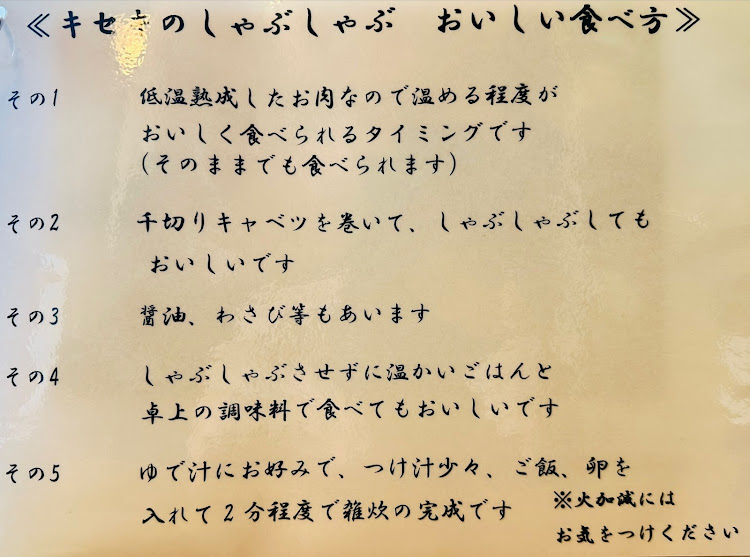 ≪キセキのしゃぶしゃぶ おいしい食べ方≫
その1 低温熟成したお肉なので温める程度が
おいしく食べられるタイミングです
(そのままでも食べられます)
その2 千切りキャベツを巻いて、しゃぶしゃぶしても
おいしいです
その3 醤油、わさび等もあいます
その4 しゃぶしゃぶさせずに温かいごはんと
卓上の調味料で食べてもおいしいです
その5 ゆで汁にお好みで、つけ汁少々、ご飯、卵を
入れて2分程度で雑炊の完成です
※火加減には
お気をつけください